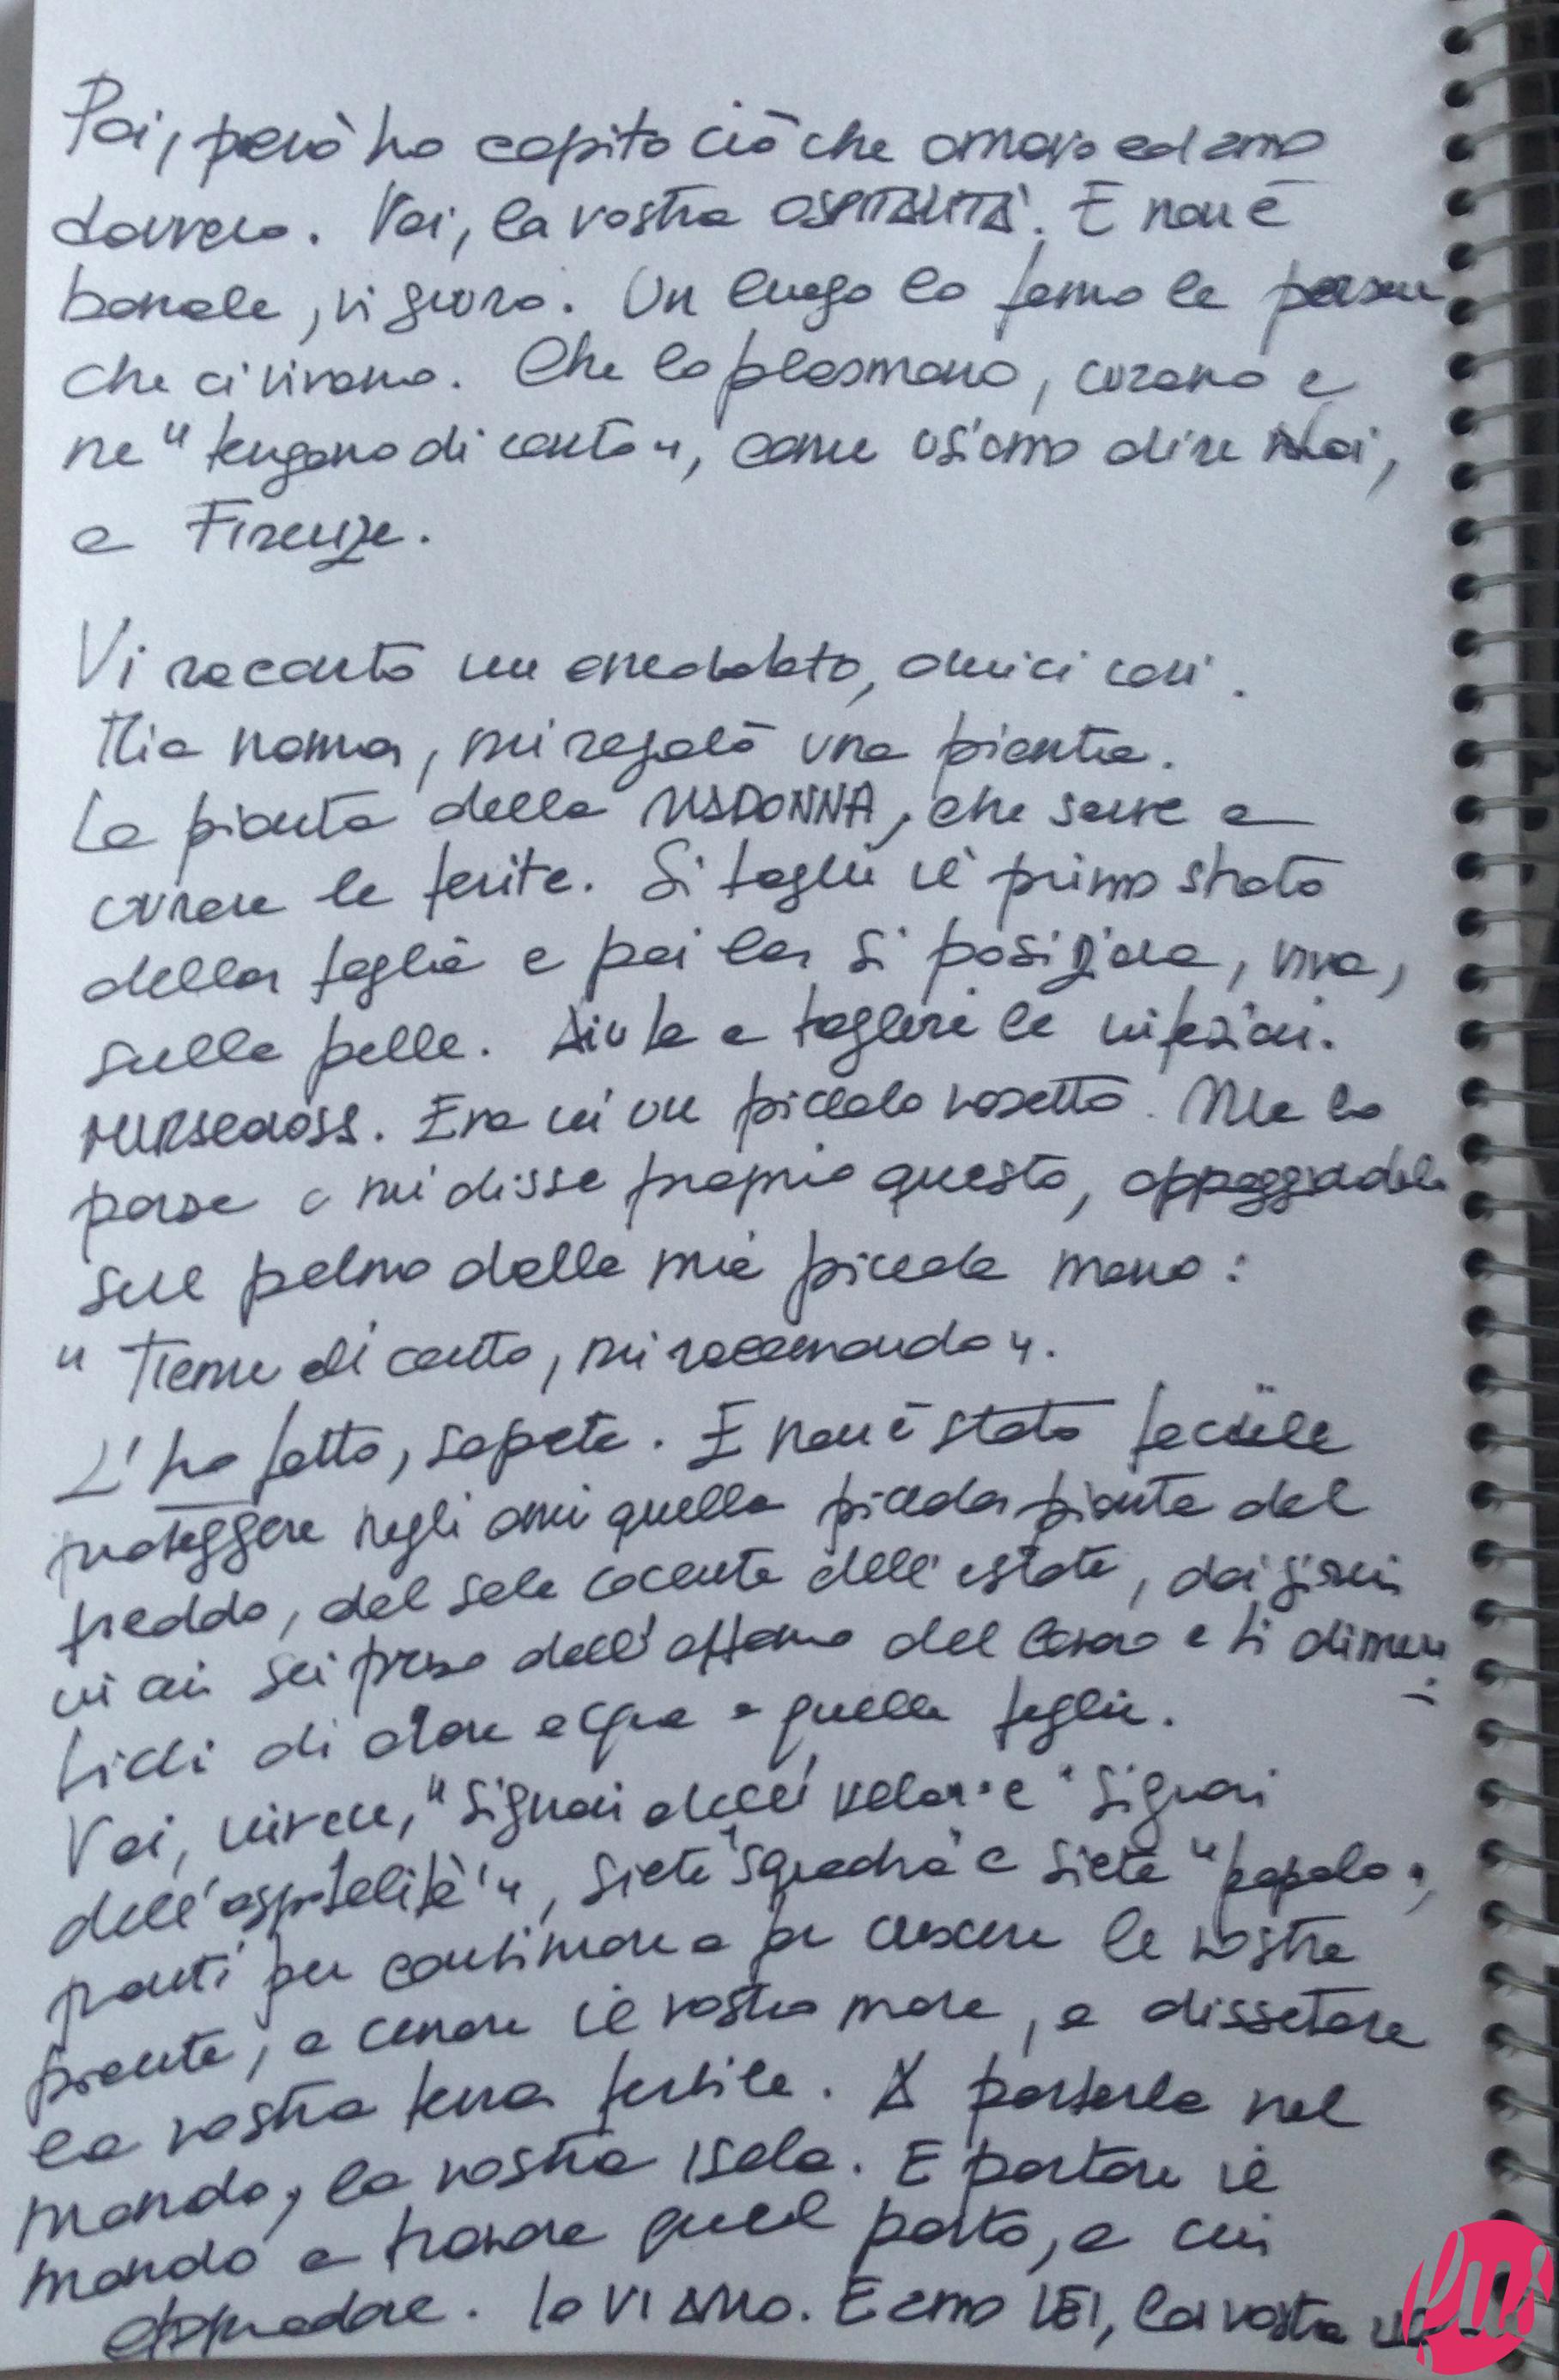 Poi, però ho capito ciò che amavo ed amo
davvero. Voi, la vostra OSPITALITÀ. E non è
banale, vi giuro. Un luogo lo fanno le persone
che ci vivono. Che lo plasmano, curano e
ne "tengono di conto", come usiamo dire noi,
a Firenze.
Vi racconto un aneddoto, amici cari.
Mia nonna, mi regalò una pianta.
La pianta della MADONNA, che serve a
curare le ferite. Si toglie il primo strato
della foglia e poi la si posiziona, viva,
sulla pelle. Aiuta a togliere le infezioni.
Era in un piccolo vasetto. Me lo
porse e mi disse proprio questo, appoggiandolo
sul palmo della mia piccola mano:
"Tienine di conto, mi raccomando".
L'ho fatto, sapete. E non è stato facile
proteggere negli anni quella piccola pianta dal
freddo, dal sole cocente dell'estate, dai giorni
in cui sei preso dall'affanno del lavoro e ti dimen
tichi di dare acqua a quelle foglie.
Voi, invece, "Signori della vela" e "Signori
dell'ospitalità", siete "squadra" e siete "popolo",
pronti per continuare a far crescere le vostre
piante, a curare il vostro mare, a dissetare
la vostra terra fertile. A portarla nel
mondo, la vostra isola. E portare il
mondo a trovare quel porto, a cui
approdare. Io VI AMO. E amo LEI, la vostra